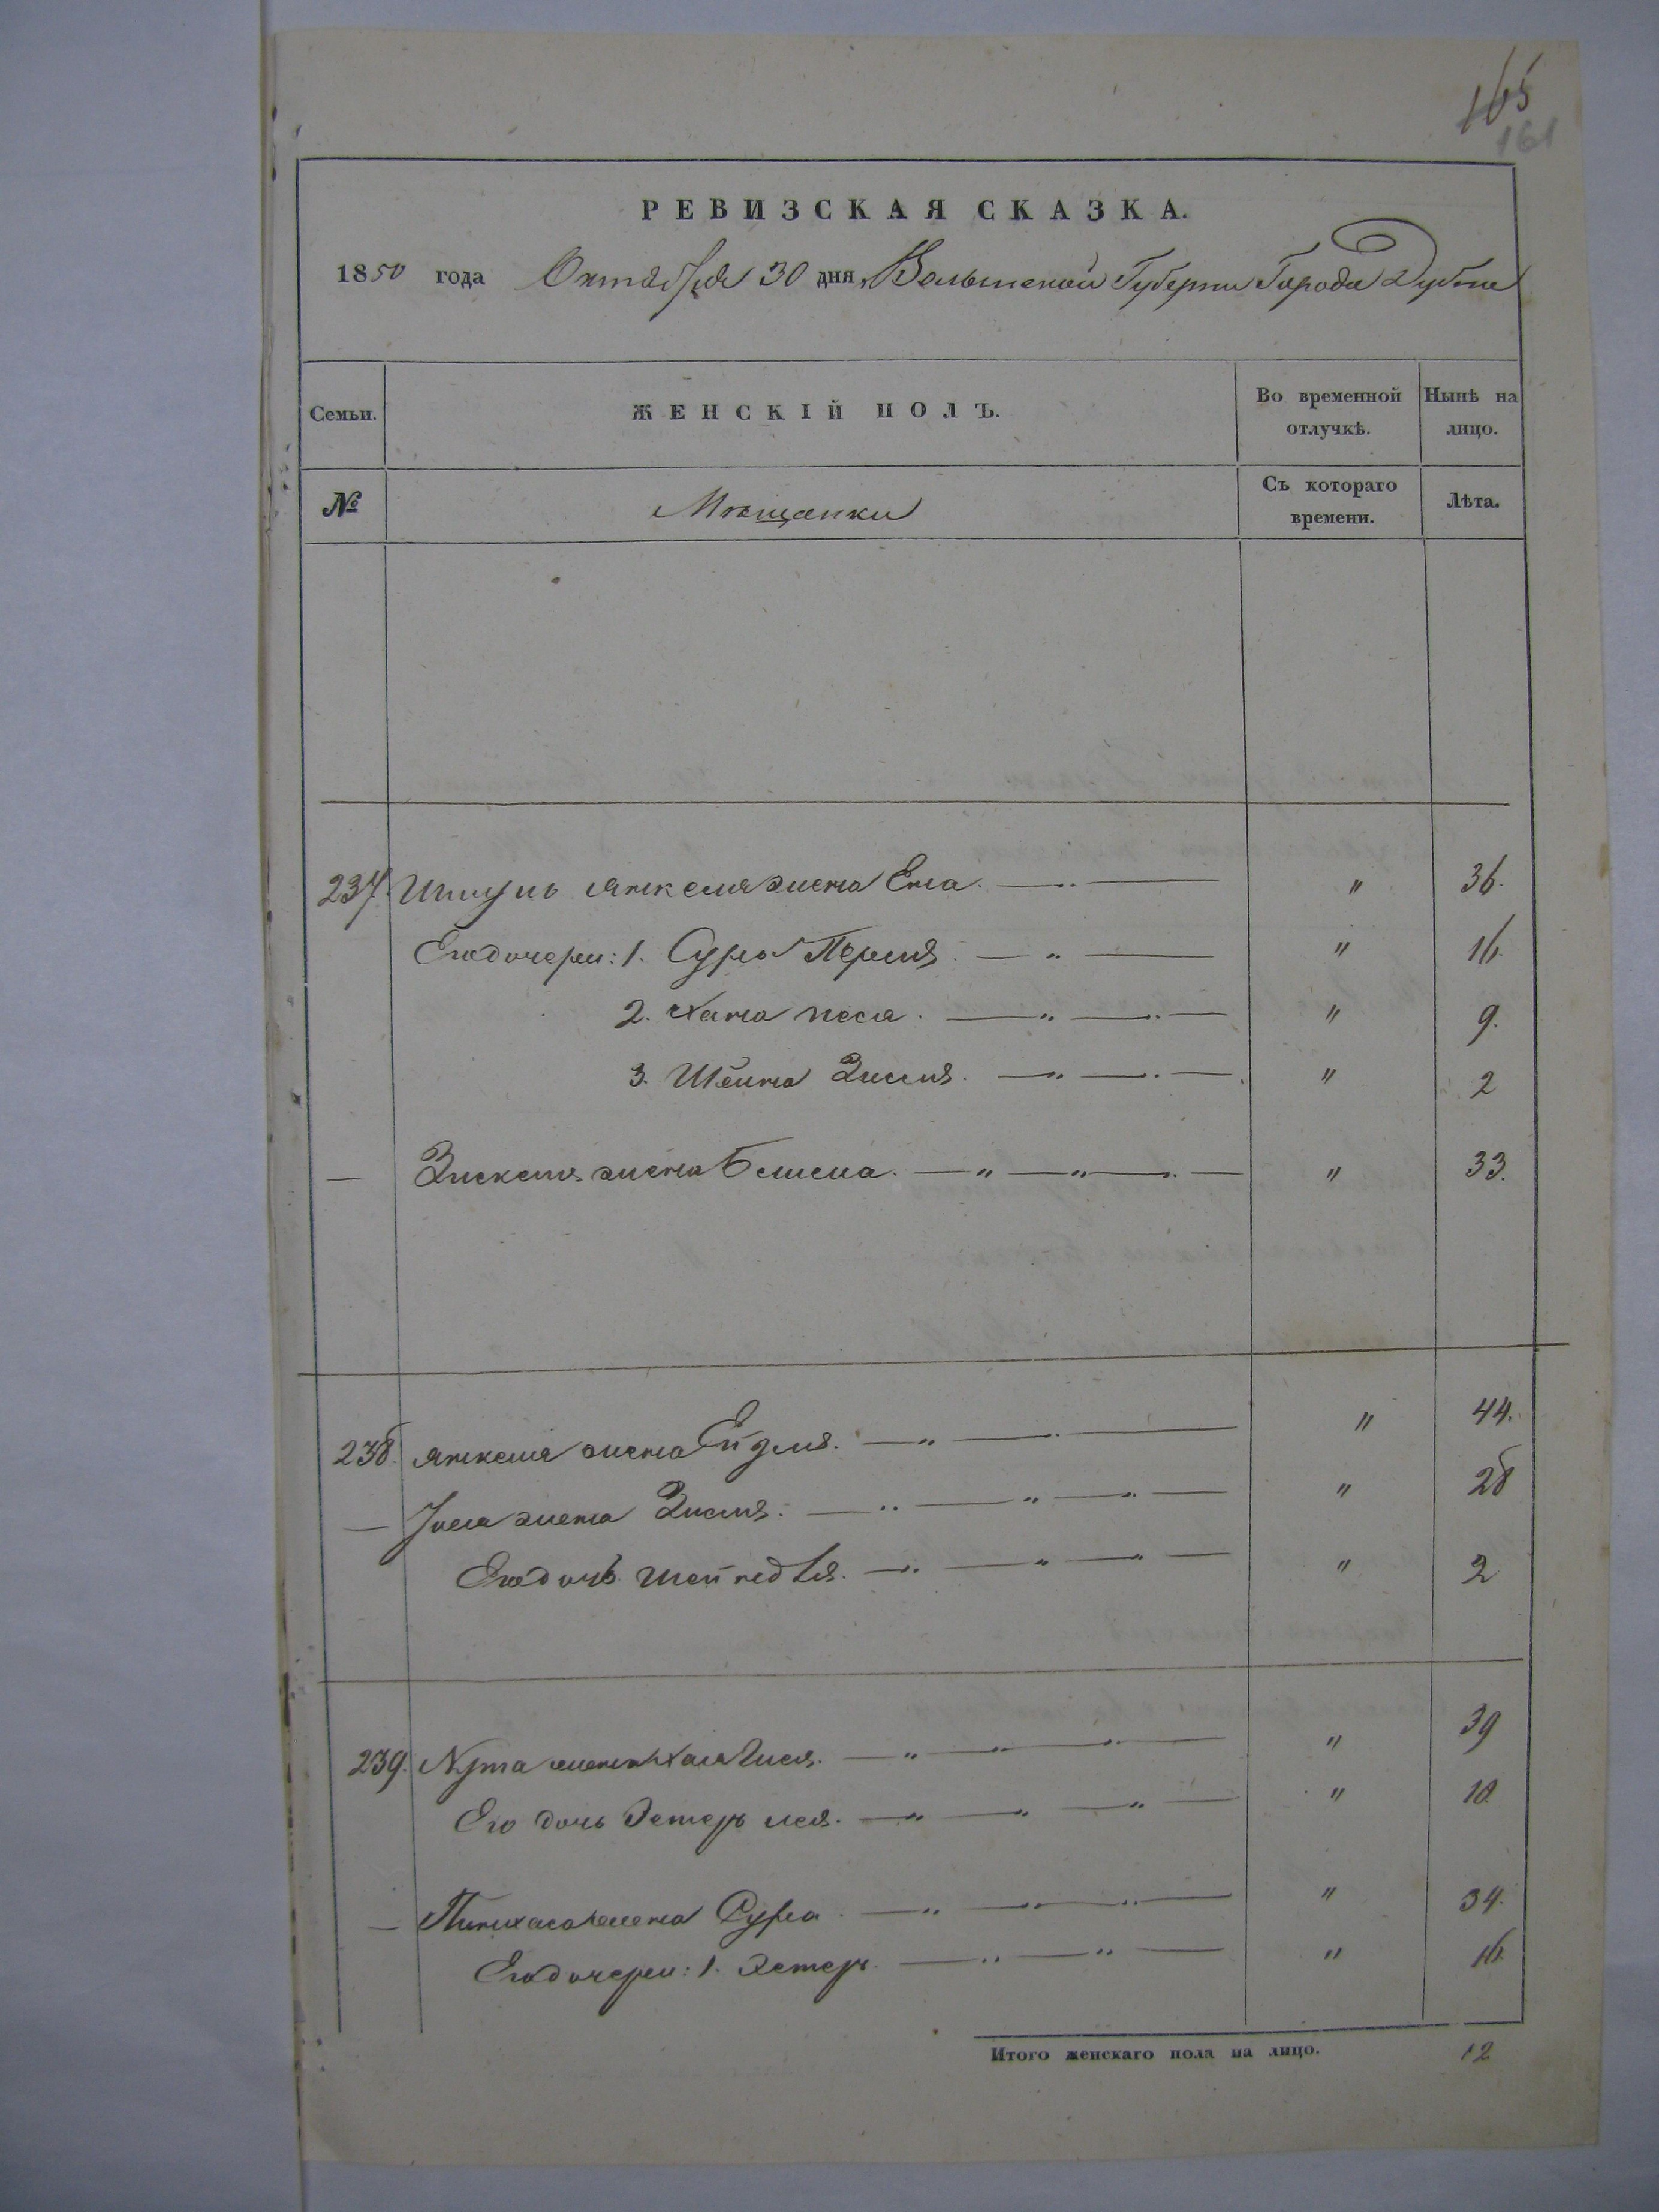 165
161
РЕВИЗСКАЯ СКАЗКА.
1850 года Октября 30 дня, Волынской Губернии Города Дубна
Семьи. ЖЕНСКІЙ ПОЛЪ. Во временной отлучкѣ. Нынѣ на лицо.
№ Мѣщанки Съ котораго времени. Лѣта.
237. Янкеля жена Ена. " 36.
Его дочери: 1. Сура Перля. " 16.
2. Хана песя. " 9.
3. Шейна Зисля. " 2
— жена " 33.
238. Янкеля жена Ейдля. " 44.
— жена Зисля. " 28
Его дочь " 2
239. Нута жена " 39
Его дочь Эстеръ лея. " 18.
— Пинхаса жена Сура. " 34.
Его дочери: 1. Эстеръ " 16.
Итого женскаго пола на лицо. 12